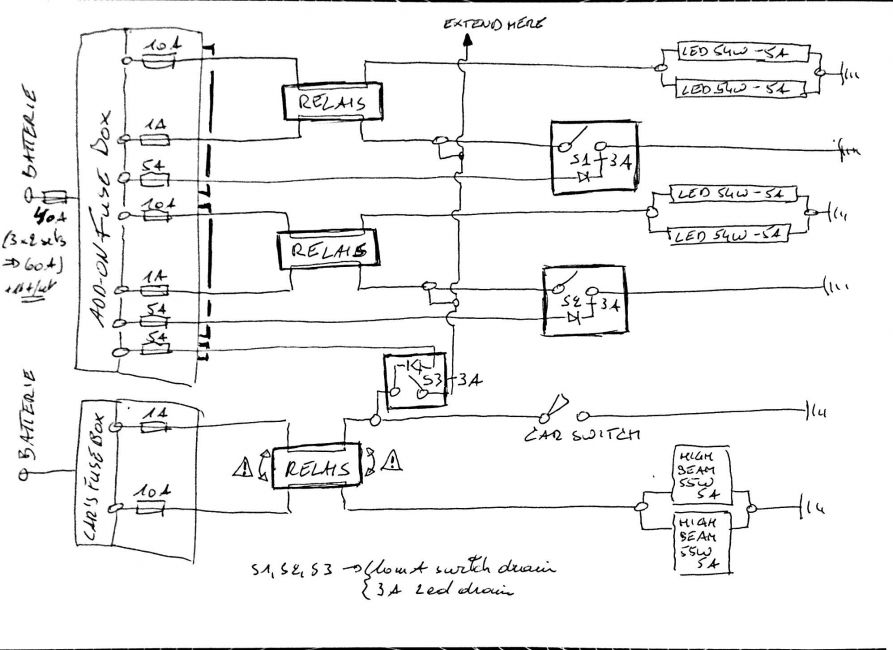 EXTEND HERE
10A
LED 54W - 5A
LED 54W - 5A
RELAIS
1A
S1 3A
5A
BATTERIE
40A
(3x2 sets
⇒ 60A)
ADD-ON FUSE BOX
10A
LED 54W - 5A
LED 54W - 5A
RELAIS
1A
S2 3A
5A
5A
S3 3A
BATTERIE
CAR'S FUSE BOX
1A
CAR SWITCH
RELAIS
10A
HIGH
BEAM
55W
5A
HIGH
BEAM
55W
5A
S1, S2, S3 → switch drain
3A Led drain